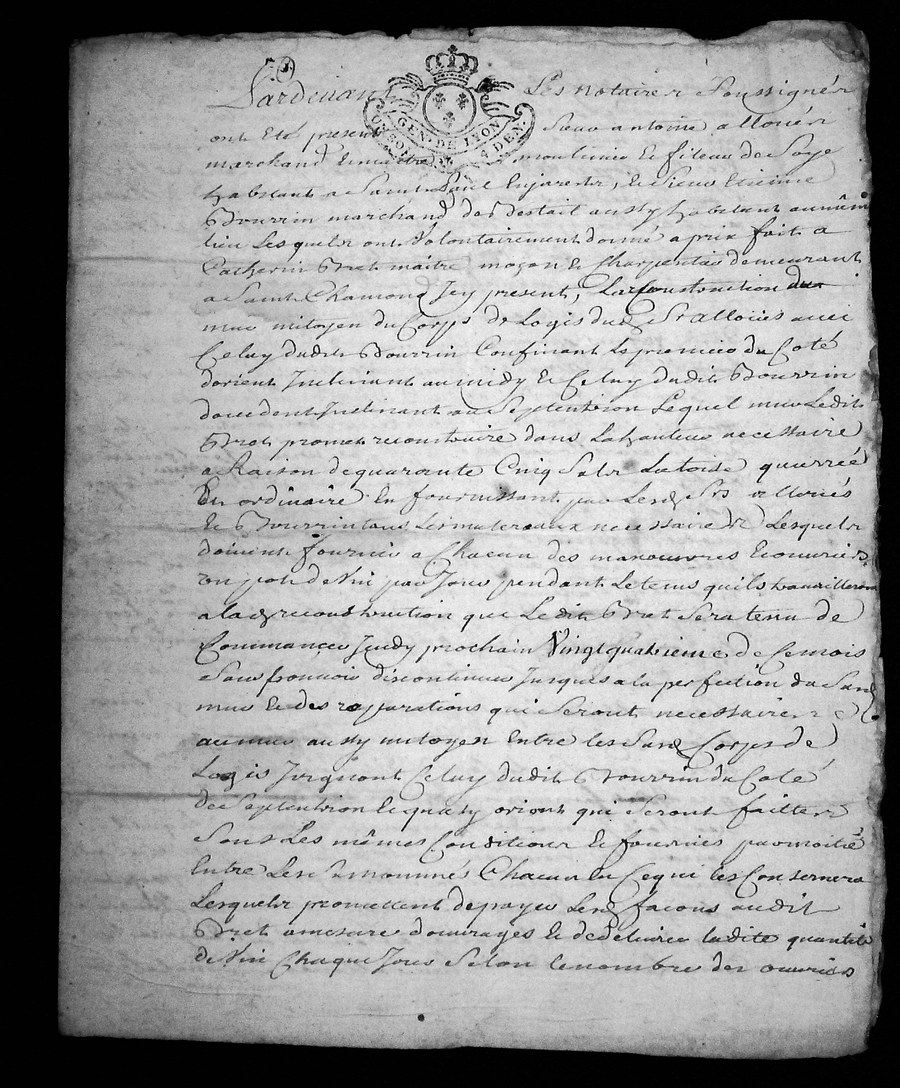 Pardevant Les notaires Soussignés
ont Eté presents Sieur antoine allouës
marchand Et maître moulinier Et fileur de Soye
habitant a Saint Paul Enjarest, Et Sieur Etienne
Bourrin marchand de destail aussy habitant au même
lieu Lesquels ont Volontairement donné a prix fait a
Catherin Bret maître maçon Et Charpentier demeurant
a Saint Chamond Icy present, La reconstruction du
mur mitoyen du Corps de Logis dud Sr allouës avec
Celuy dudit Bourrin Confinant Le premier du Coté
dorient Inclinant au midy Et Celuy dudit Bourrin
doccident Inclinant au Septentrion Lequel mur Ledit
Bret promet recontruire dans La hauteur necessaire
a Raison de quarante Cinq Sols La toise quarrée
En ordinaire En fournissant par Lesd Srs allouës
Et Bourrin tous Les materaux necessaires Lesquels
doivent fournir a Chacun des manouvres Et ouvriers
un pot de Vin par Jour pendant Le tems quils travailleron
a lad reconstruction que Ledit Bret Sera tenu de
Commancer Jeudy prochain Vingt quatrieme de Ce mois
Sans pouvoir discontinuer Jusques a la perfection du Susd
mur Et des reparations qui Seront necessaires
au mur aussy mitoyen Entre les Susd Corps de
Logis Joignant Celuy dudit Bourrin du Coté
de Septentrion Et quasy orient qui Seront faittes
Sous Les mêmes Conditions Et fournies par moitié
Entre Les Sus nommés Chacun En Ce qui les Consernera
Lesquels promettent de payer Lesd façons audit
Bret a mesure douvrages Et de delivrer ladite quantité
de Vin Chaque Jour Selon le nombre des ouvriers
GEN. DE LYON